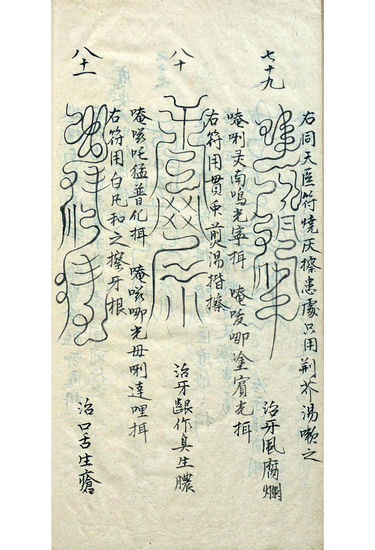 右同天医符燒灰擦患處只用荆芥湯嗽之
七十九
治牙風腐爛
唵唎灵南鳴光寧揖 唵唆哪塗賓光揖
右符用煎湯揩擦
八十
治牙齦作臭生膿
唵吒猛普化揖 唵哪光母唎達哩揖
右符用白凡和之擦牙根
八十一
治口舌生瘡